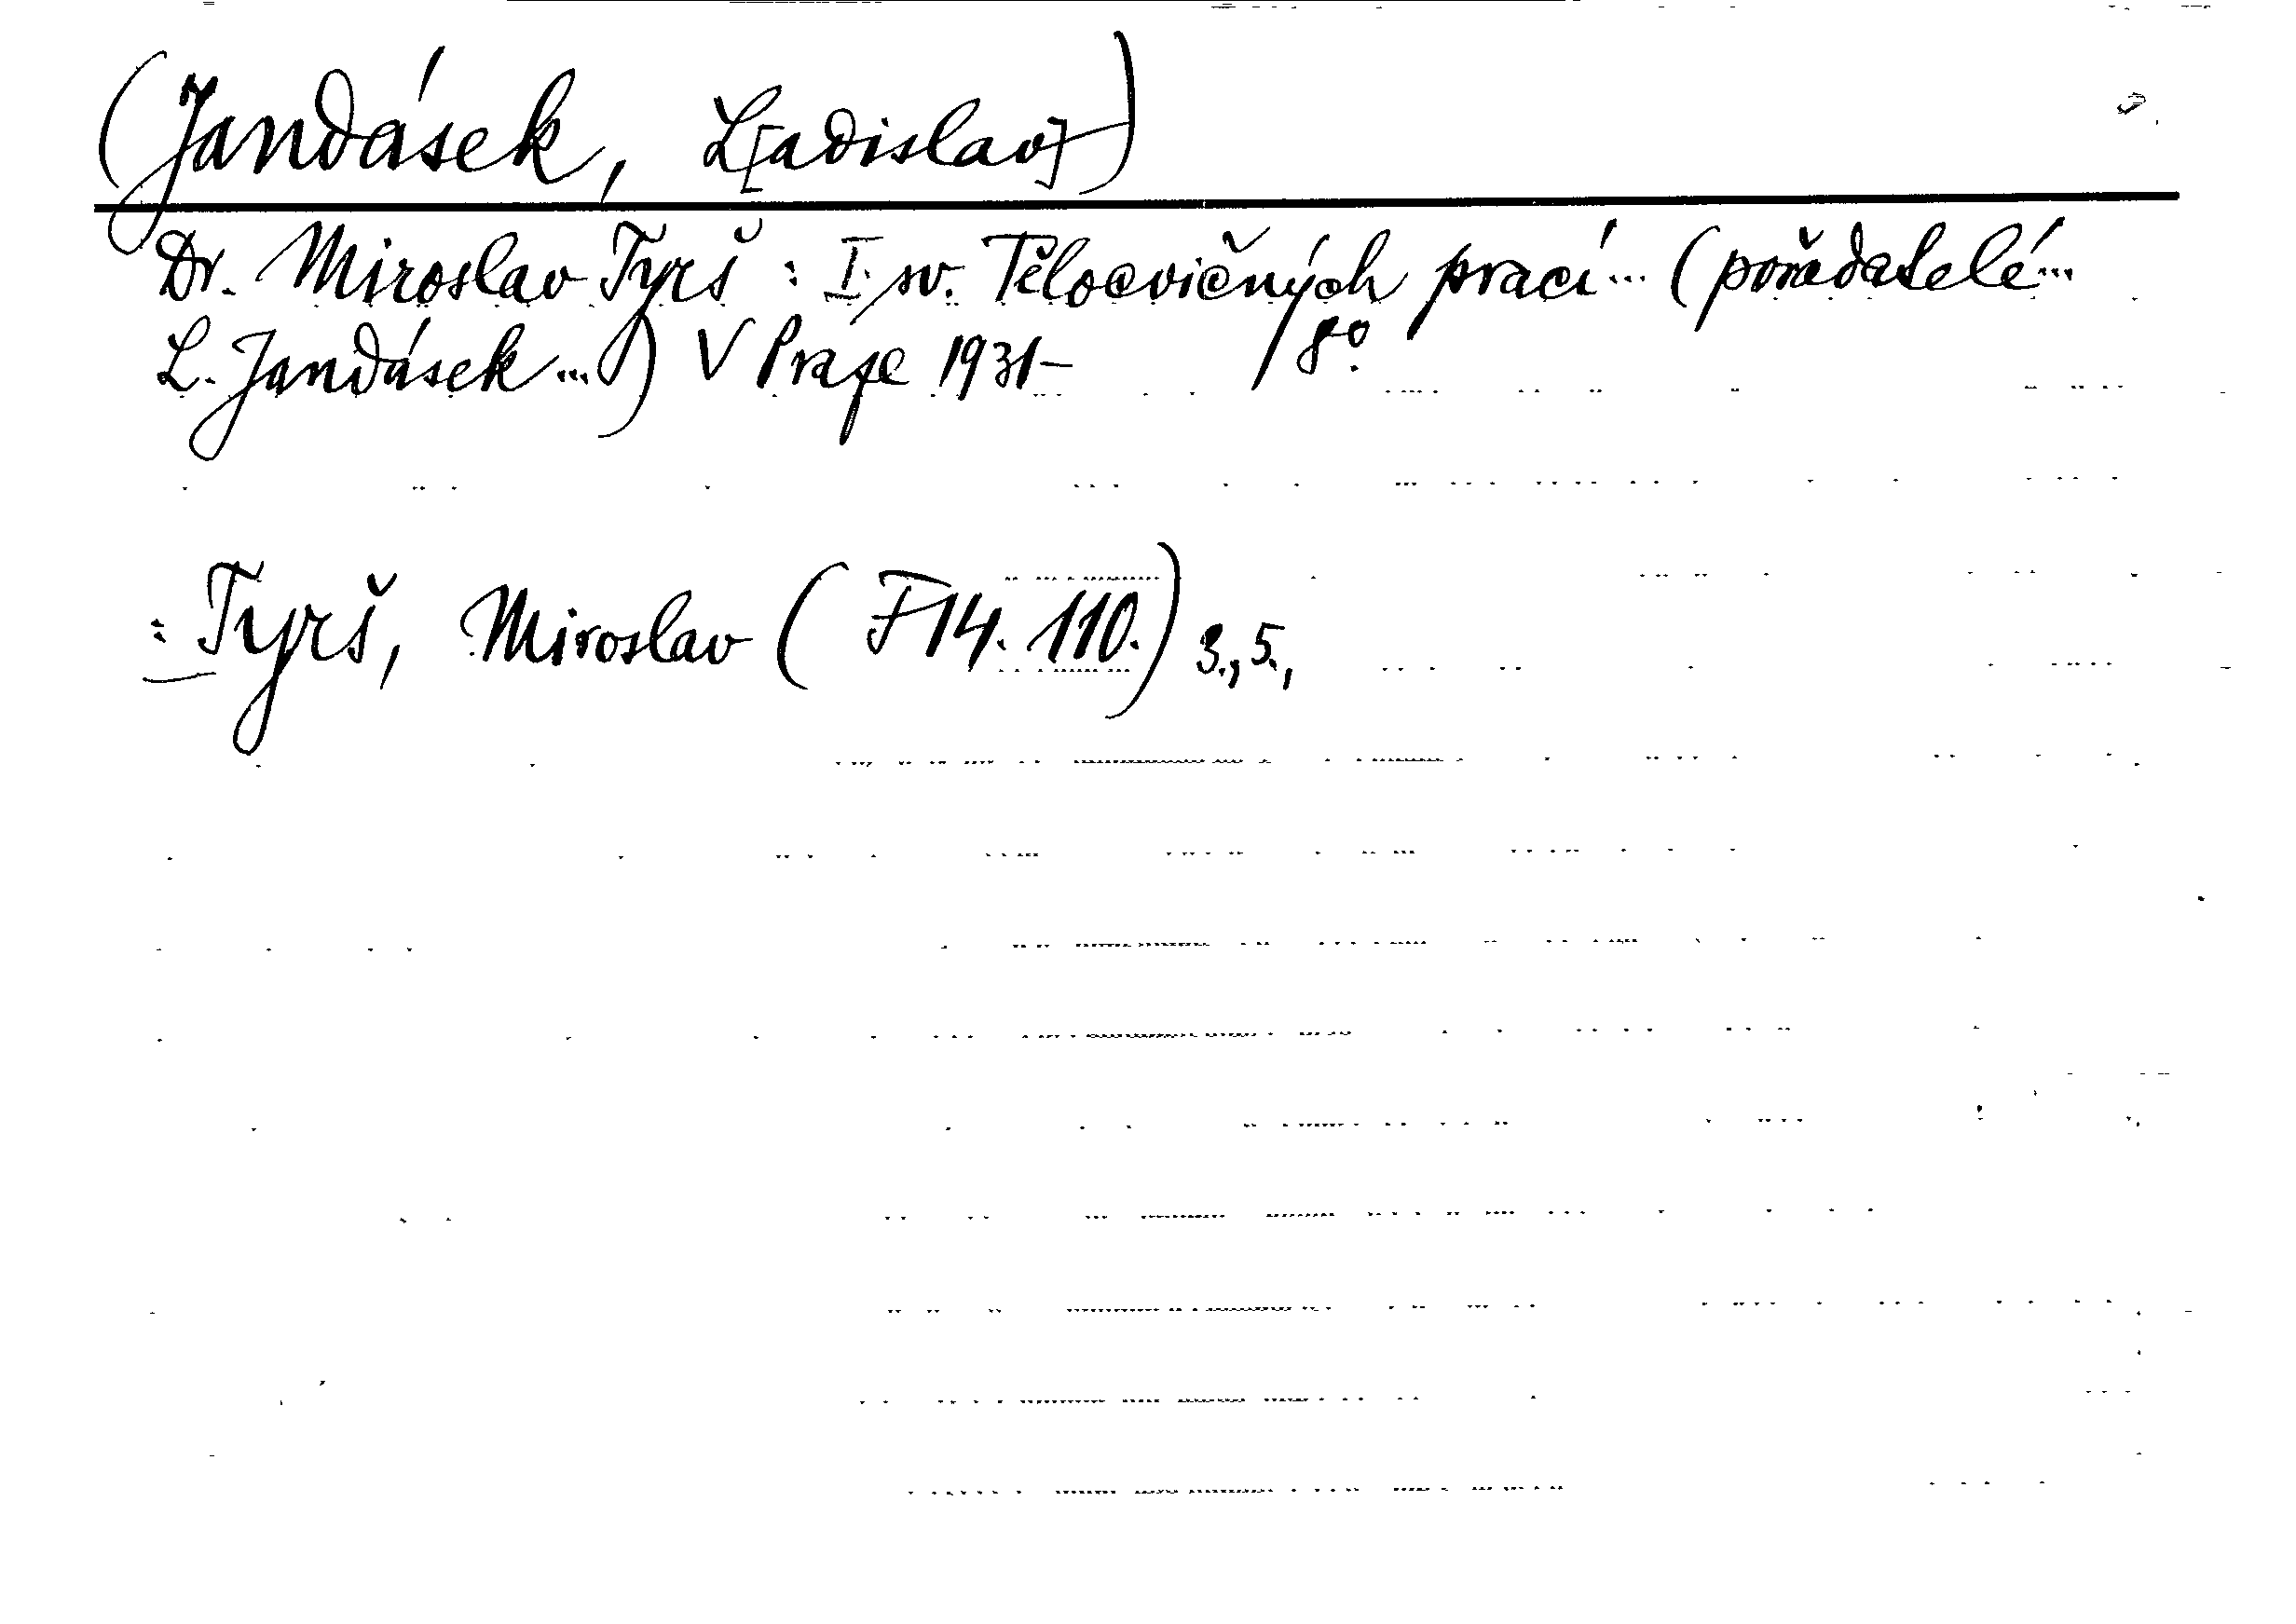 (Jandásek, L[adislav])
Dr. Miroslav Tyrš : I. sv. Tělocvičných prací ... (pořadatelé ...
L. Jandásek ...) V Praze 1931- 8°.
: Tyrš, Miroslav (F 14. 110.) 3., 5.,